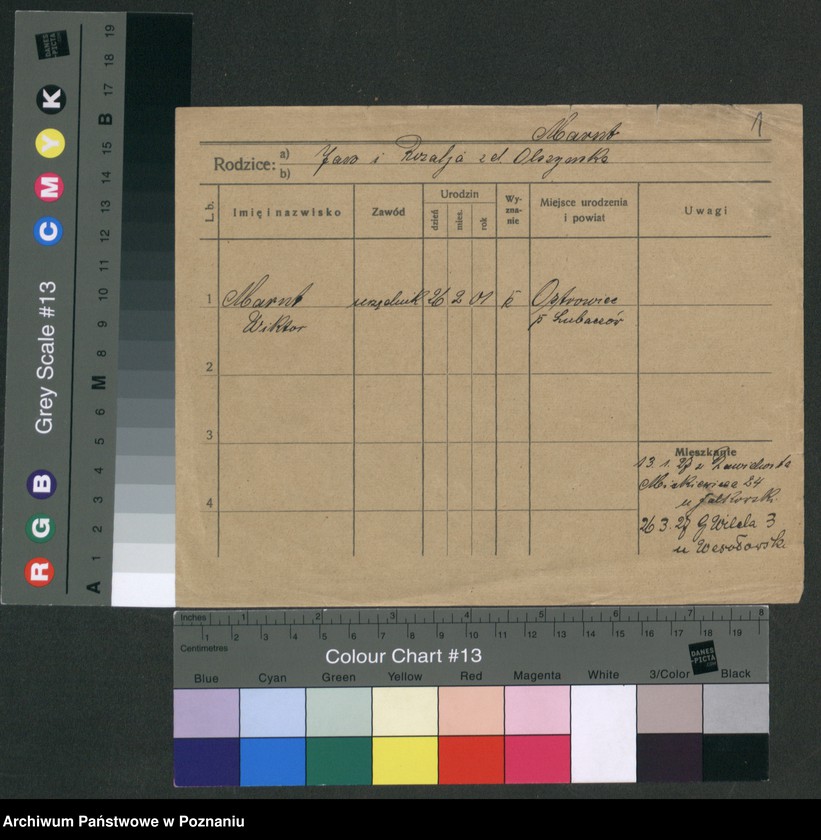 Marnt
1
Rodzice: a) Jan i Rozalja zd Olszynska
b)
L. b.
Imię i nazwisko
Zawód
Urodzin
dzień
mies.
rok
Wy-
zna-
nie
Miejsce urodzenia
i powiat
Uwagi
1 Marnt urzędnik 26 2 01 k Ostrowiec
Wiktor p Lubaczów
2
3
4
Mieszkanie
13. 1. 27 z
Mickiewicza 24
u
26 3. 27 G Wilda 3
u
Grey Scale #13
DANES
-PICTA
.COM
R G B C M Y K
A 1 2 3 4 5 6 M 8 9 10 11 12 13 14 15 B 17 18 19
Inches 1 2 3 4 5 6 7 8
1 2 3 4 5 6 7 8 9 10 11 12 13 14 15 16 17 18 19
Centimetres
Colour Chart #13
DANES
-PICTA
.COM
Blue Cyan Green Yellow Red Magenta White 3/Color Black
Archiwum Państwowe w Poznaniu